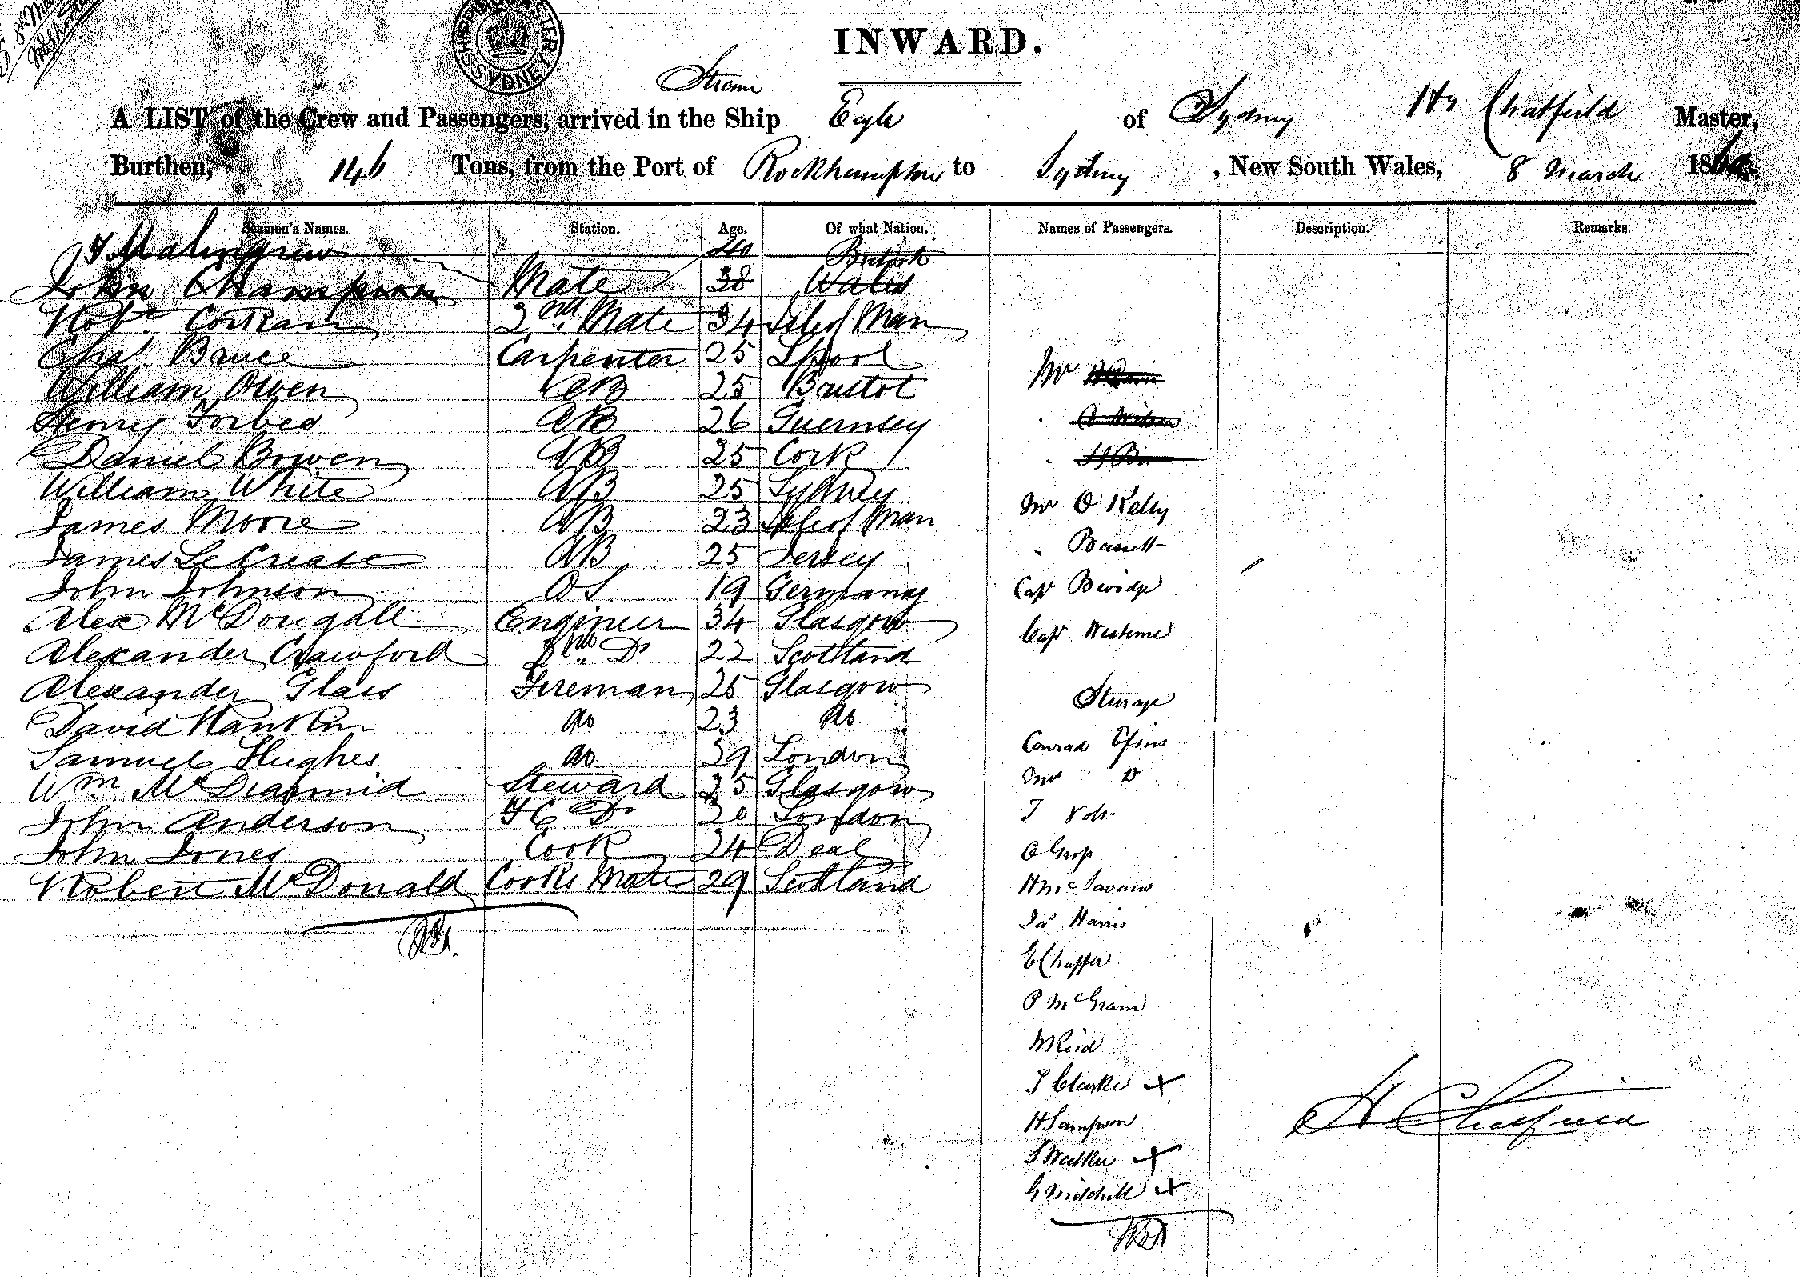 INWARD.
Steam
A LIST of the Crew and Passengers, arrived in the Ship Eagle of Sydney Hy Chatfield Master,
Burthen, 146 Tons, from the Port of Rockhampton to Sydney, New South Wales, 8 March 186
Seamen's Names. Station. Age. Of what Nation. Names of Passengers. Description. Remarks.
40 British
John Champion Mate 38 Wales
Robt Corkan 2nd Mate 34 Isle of Man
Chas Bruce Carpenter 25 Lpool
William Owen AB 25 Bristol
Henry Forbes AB 26 Guernsey
Daniel Bowen AB 25 Cork
William White AB 25 Sydney
James Moore AB 23 Isle of Man
James Le Crease AB 25 Jersey
John Johnson OS 19 Germany
Alex McDougall Engineer 34 Glasgow
Alexander Crawford 2nd Do 22 Scotland
Alexander Glass Fireman 25 Glasgow
David Rankin do 23 do
Samuel Hughes do 29 London
Wm McDiarmid Steward 35 Glasgow
John Anderson FC Do 30 London
John Jones Cook 24 Deal
Robert McDonald Cooks Mate 29 Scotland
Mr
Mr O Kelly
" Barrett
Capt
Capt
Steerage
Conrad
Mrs D
Jas Harris
E Chaffer
P McGram
M Reid
J Clarke x
H Sampson
S Walker x
G Mitchell x
H Chatfield